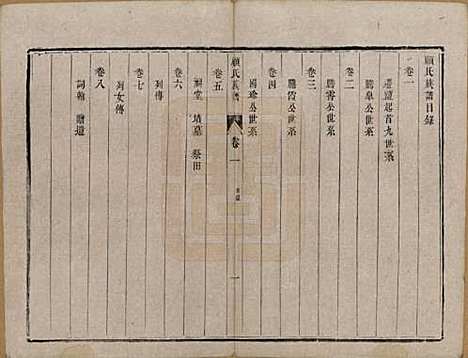 顧氏族譜目錄
卷一
遷建起首九世系
卷二
鵬皐公世系
卷三
鵬霄公世系
卷四
鵬霞公世系
國珍公世系
顧氏族譜
卷一
目錄
一
卷五
祠堂 墳墓 祭田
卷六
列傳
卷七
列女傳
卷八
詞翰 贈遺